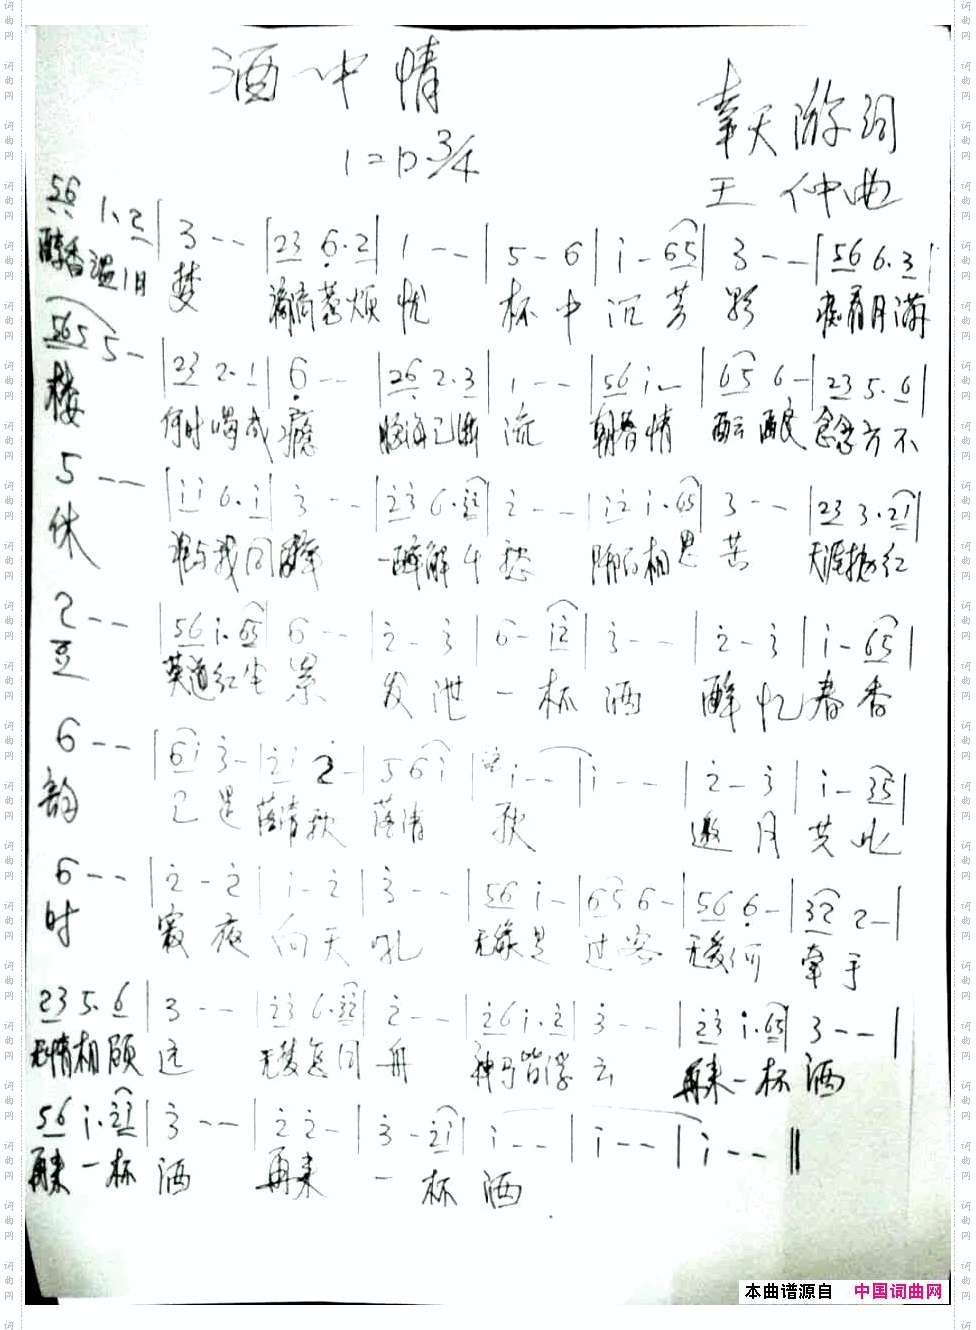 酒中情
1=D 3/4
奉天游词
王仲曲
56 1.2 | 3 -- | 23 6.2 | 1 -- | 5-6 | i-65 | 3 -- | 56 6.3 |
醇香温旧 梦 滴滴惹烦 忧 杯中沉芳 影 痴看月满
565 5- | 23 2.1 | 6 -- | 26 2.3 | 1 -- | 56 i- | 65 6- | 23 5.6 |
楼 何时喝成 瘾 脑海已断 流 朝暮情 酝酿 念念方不
5 -- | ii 6.i | 3 -- | 23 6.32 | 2 -- | i2 i.65 | 3 -- | 23 3.21 |
休 谁与我同 醉 一醉解千 愁 相思 苦 天涯 红
2 -- | 56 i.65 | 6 -- | 2-3 | 6-i2 | 3 -- | 2-3 | i-65 |
豆 莫道红尘 累 发泄一杯酒 醉忆春香
6 -- | 6i 3- | 2i 2- | 5 6i | i -- | i -- | 2-3 | i-35 |
韵 已是 落清秋 落清 秋 邀月共此
6 -- | 2-2 | i-2 | 3 -- | 56 i- | 65 6- | 56 6- | 32 2- |
时 寂夜向天吼 无缘是 过客 无爱何 牵手
23 5.6 | 3 -- | 23 6.32 | 2 -- | 26 i.2 | 3 -- | 23 i.65 | 3 -- |
无情相顾 远 无梦怎同 舟 神马皆浮 云 再来一杯 酒
56 i.23 | 3 -- | 22- | 3-2i | i -- | i -- | i -- ‖
再来一杯 酒 再来 一杯 酒
本曲谱源自 中国词曲网